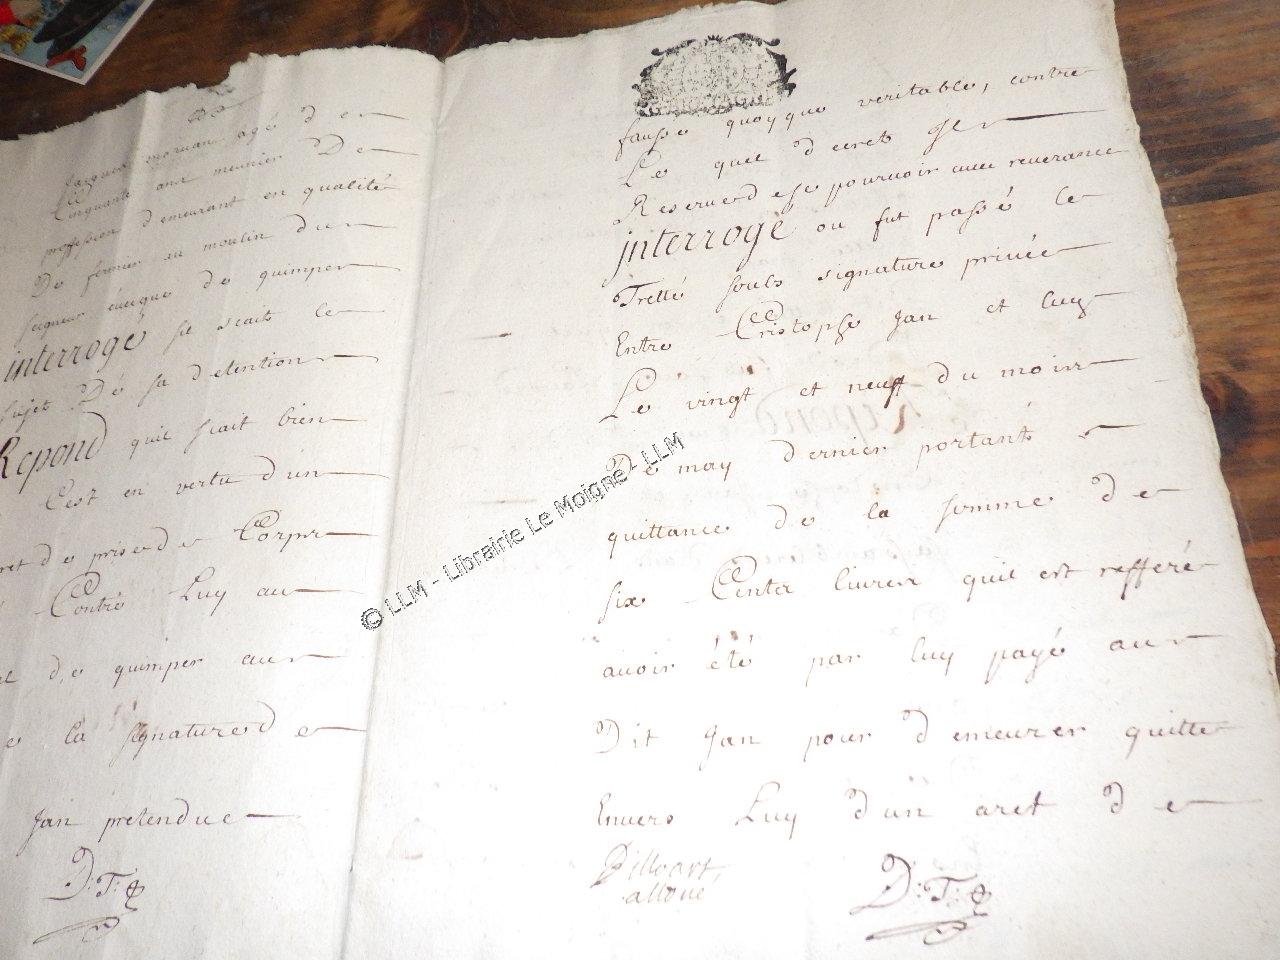 Jacques moruan agé d e
Cinquante ans meunier De
proffession d emeurant en qualité
De fermier au moulin du
seigneur éueque de quimper
interrogé sil scait le
sujet De sa d etention
Repond quil scait bien
C'est en vertu d'un
de prise de Corps
Contre Luy au
de quimper aux
la signature d e
Jan pretendue
D: T:
fausse quoyque veritable, contre
Le quel d ecret Il
Reserue d e se pouruoir auec reuerance
interrogé ou fut passé le
Tretté soubs signature priuée
Entre Cristophe Jan et luy
Le vingt et neuff du mois
De may dernier portant
quittance de la somme d e
six Cents liures quil est refféré
auoir été par luy payé au
Dit Jan pour d emeurer quitte
Enuers Luy d'un aret d e
alloué
D: T:
© LLM - Librairie Le Moigne - LLM